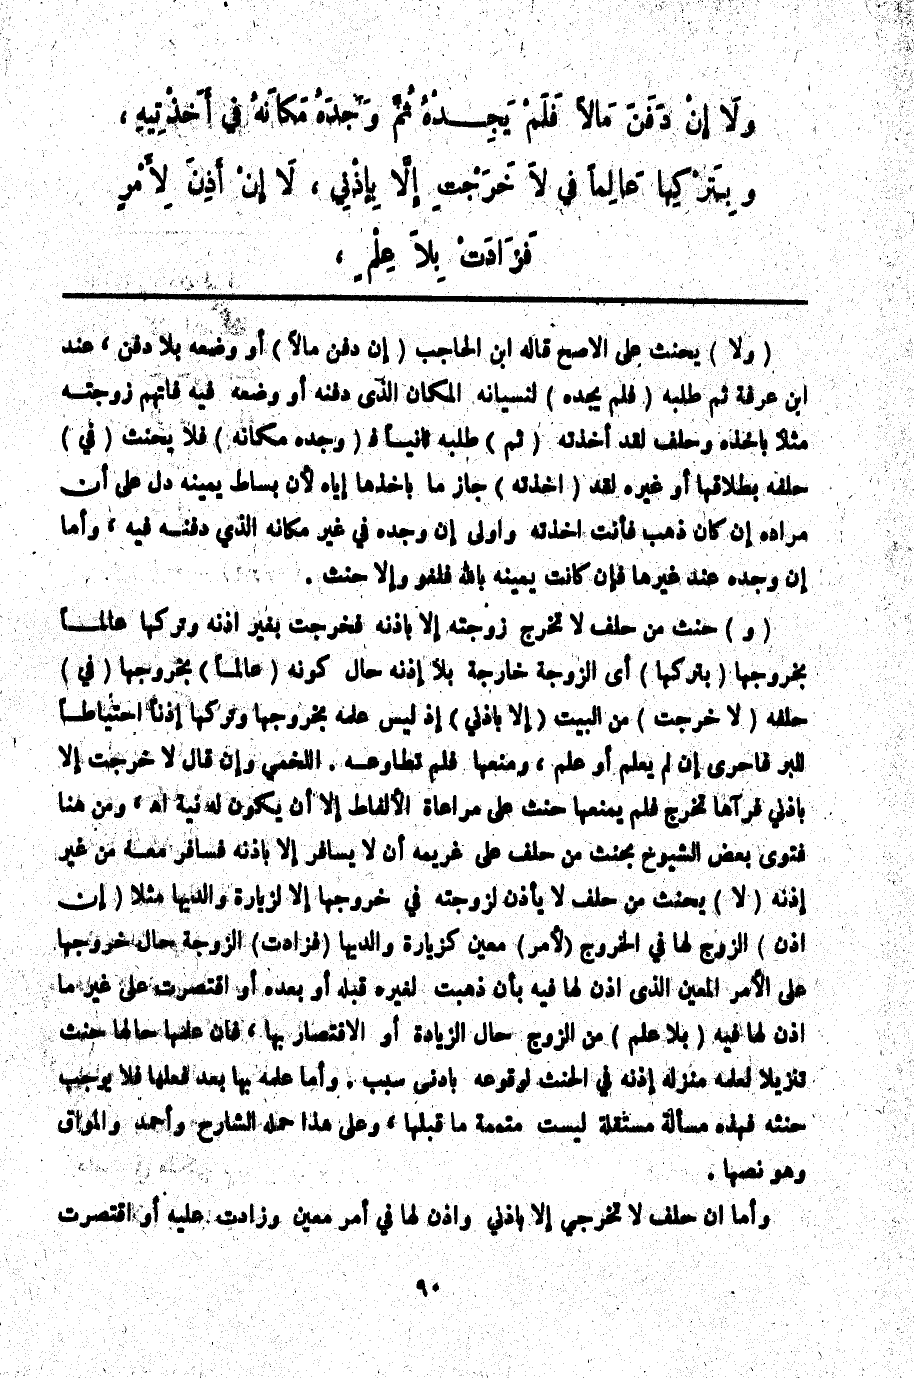 ولَا إِنْ دَفَنَ مَالاً فَلَمْ يَجِـــدْهُ ثُمَّ وَجَدَهُ مَكَانَهُ فِي أَخَذْتِيهِ ،
و بِتَرْكِهَا عَالِماً فِي لاَ خَرَجْتِ إِلَّا بِإِذْنِي ، لَا إِنْ أَذِنَ لِأَمْرٍ
فَزَادَتْ بِلاَ عِلْمٍ ،
( ولا ) يحنث على الاصح قاله ابن الحاجب ( إن دفن مالاً ) أو وضعه بلا دفن ، عند
ابن عرفة ثم طلبه ( فلم يجده ) لنسيانه المكان الذى دفنه أو وضعه فيه فاتهم زوجتـه
مثلاً باخذه وحلف لقد أخذته ( ثم ) طلبه ثانيـاً فـ ( وجده مكانه ) فلا يحنث ( في )
حلفه بطلاقها أو غيره لقد ( اخذته ) جاز ما باخذها إياه لأن بساط يمينه دل على أن
مراده إن كان ذهب فأنت اخذته واولى إن وجده في غير مكانه الذي دفنـه فيه ، وأما
إن وجده عند غيرها فإن كانت يمينه بالله فلغو وإلا حنث .
( و ) حنث من حلف لا تخرج زوجته إلا باذنه فخرجت بغير اذنه وتركها عالمـــاً
بخروجها ( بتركها ) أى الزوجة خارجة بلا إذنه حال كونه ( عالمـاً ) بخروجها ( في )
حلفه ( لا خرجت ) من البيت ( إلا باذني ) إذ ليس علمه بخروجها وتركها إذناً احتياطـاً
للبر فاحرى إن لم يعلم أو علم ، ومنعها فلم تطاوعـه . اللخمي وإن قال لا خرجت إلا
باذني فرآها تخرج فلم يمنعها حنث على مراعاة الألفاظ إلا أن يكون له نية اه ، ومن هنا
فتوى بعض الشيوخ بحنث من حلف على غريمه أن لا يسافر إلا باذنه فسافر معـه من غير
إذنه ( لا ) يحنث من حلف لا يأذن لزوجته في خروجها إلا لزيارة والديها مثلا ( إن
اذن ) الزوج لها في الخروج (لأمر) معين كزيارة والديها (فزادت) الزوجة حال خروجها
على الأمر المعين الذى اذن لها فيه بأن ذهبت لغيره قبله أو بعده أو اقتصرت على غير ما
اذن لها فيه ( بلا علم ) من الزوج حال الزيادة أو الاقتصار بها ، فان علمها حالها حنث
تنزيلا لعلمه منزلة إذنه في الحنث لوقوعه بادنى سبب . وأما علمه بها بعد فعلها فلا يوجب
حنثه فهذه مسألة مستقلة ليست متممة ما قبلها ، وعلى هذا حمله الشارح وأحمد والمواق
وهو نصها .
وأما ان حلف لا تخرجي إلا باذني واذن لها في أمر معين وزادت عليه أو اقتصرت
٩٠